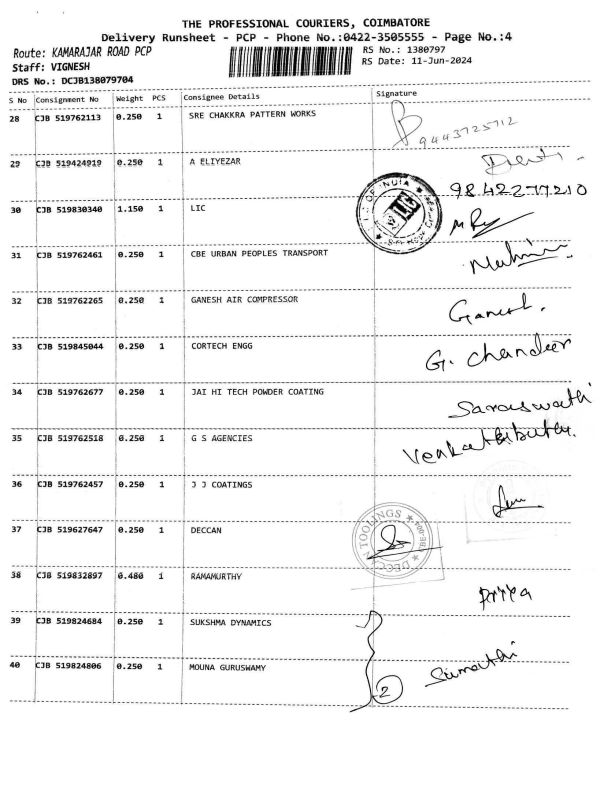 THE PROFESSIONAL COURIERS, COIMBATORE
Delivery Runsheet - PCP - Phone No.:0422-3505555 - Page No.:4
Route: KAMARAJAR ROAD PCP
RS No.: 1380797
Staff: VIGNESH
RS Date: 11-Jun-2024
DRS No.: DCJB138079704
S No Consignment No Weight PCS Consignee Details Signature
28 CJB 519762113 0.250 1 SRE CHAKKRA PATTERN WORKS 9443725712
29 CJB 519424919 0.250 1 A ELIYEZAR
9842277210
30 CJB 519830340 1.150 1 LIC
LIC
31 CJB 519762461 0.250 1 CBE URBAN PEOPLES TRANSPORT
32 CJB 519762265 0.250 1 GANESH AIR COMPRESSOR Ganesh.
33 CJB 519845044 0.250 1 CORTECH ENGG G. chandeer
34 CJB 519762677 0.250 1 JAI HI TECH POWDER COATING Saraswathi
35 CJB 519762518 0.250 1 G S AGENCIES
36 CJB 519762457 0.250 1 J J COATINGS
37 CJB 519627647 0.250 1 DECCAN DECCAN TOOLINGS
38 CJB 519832897 0.480 1 RAMAMURTHY Priya
39 CJB 519824684 0.250 1 SUKSHMA DYNAMICS
40 CJB 519824806 0.250 1 MOUNA GURUSWAMY 2 Sumathi